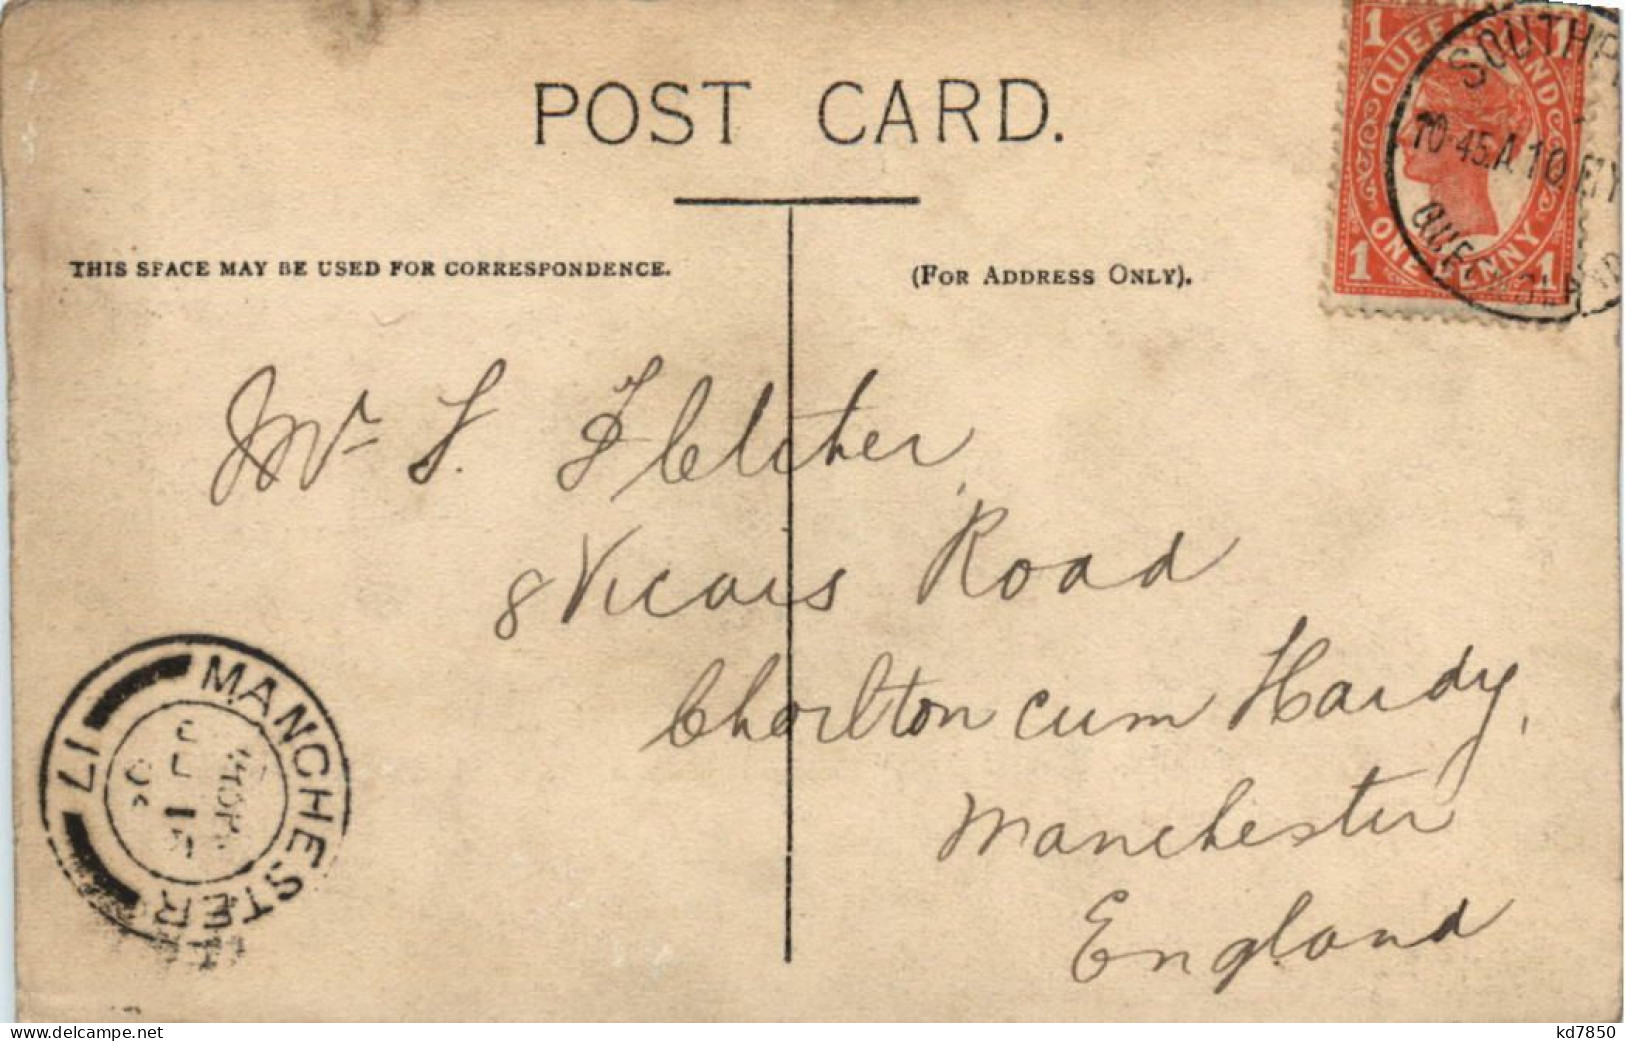 POST CARD.
THIS SPACE MAY BE USED FOR CORRESPONDENCE.
(FOR ADDRESS ONLY).
1 QUEENSLAND 1
1 ONE PENNY 1
10-45.A 10
QUEENSLAND
Mr F. Fletcher
8 Vicars Road
Chorlton cum Hardy,
Manchester
England
MANCHESTER
17
delcampe.net
kd7850